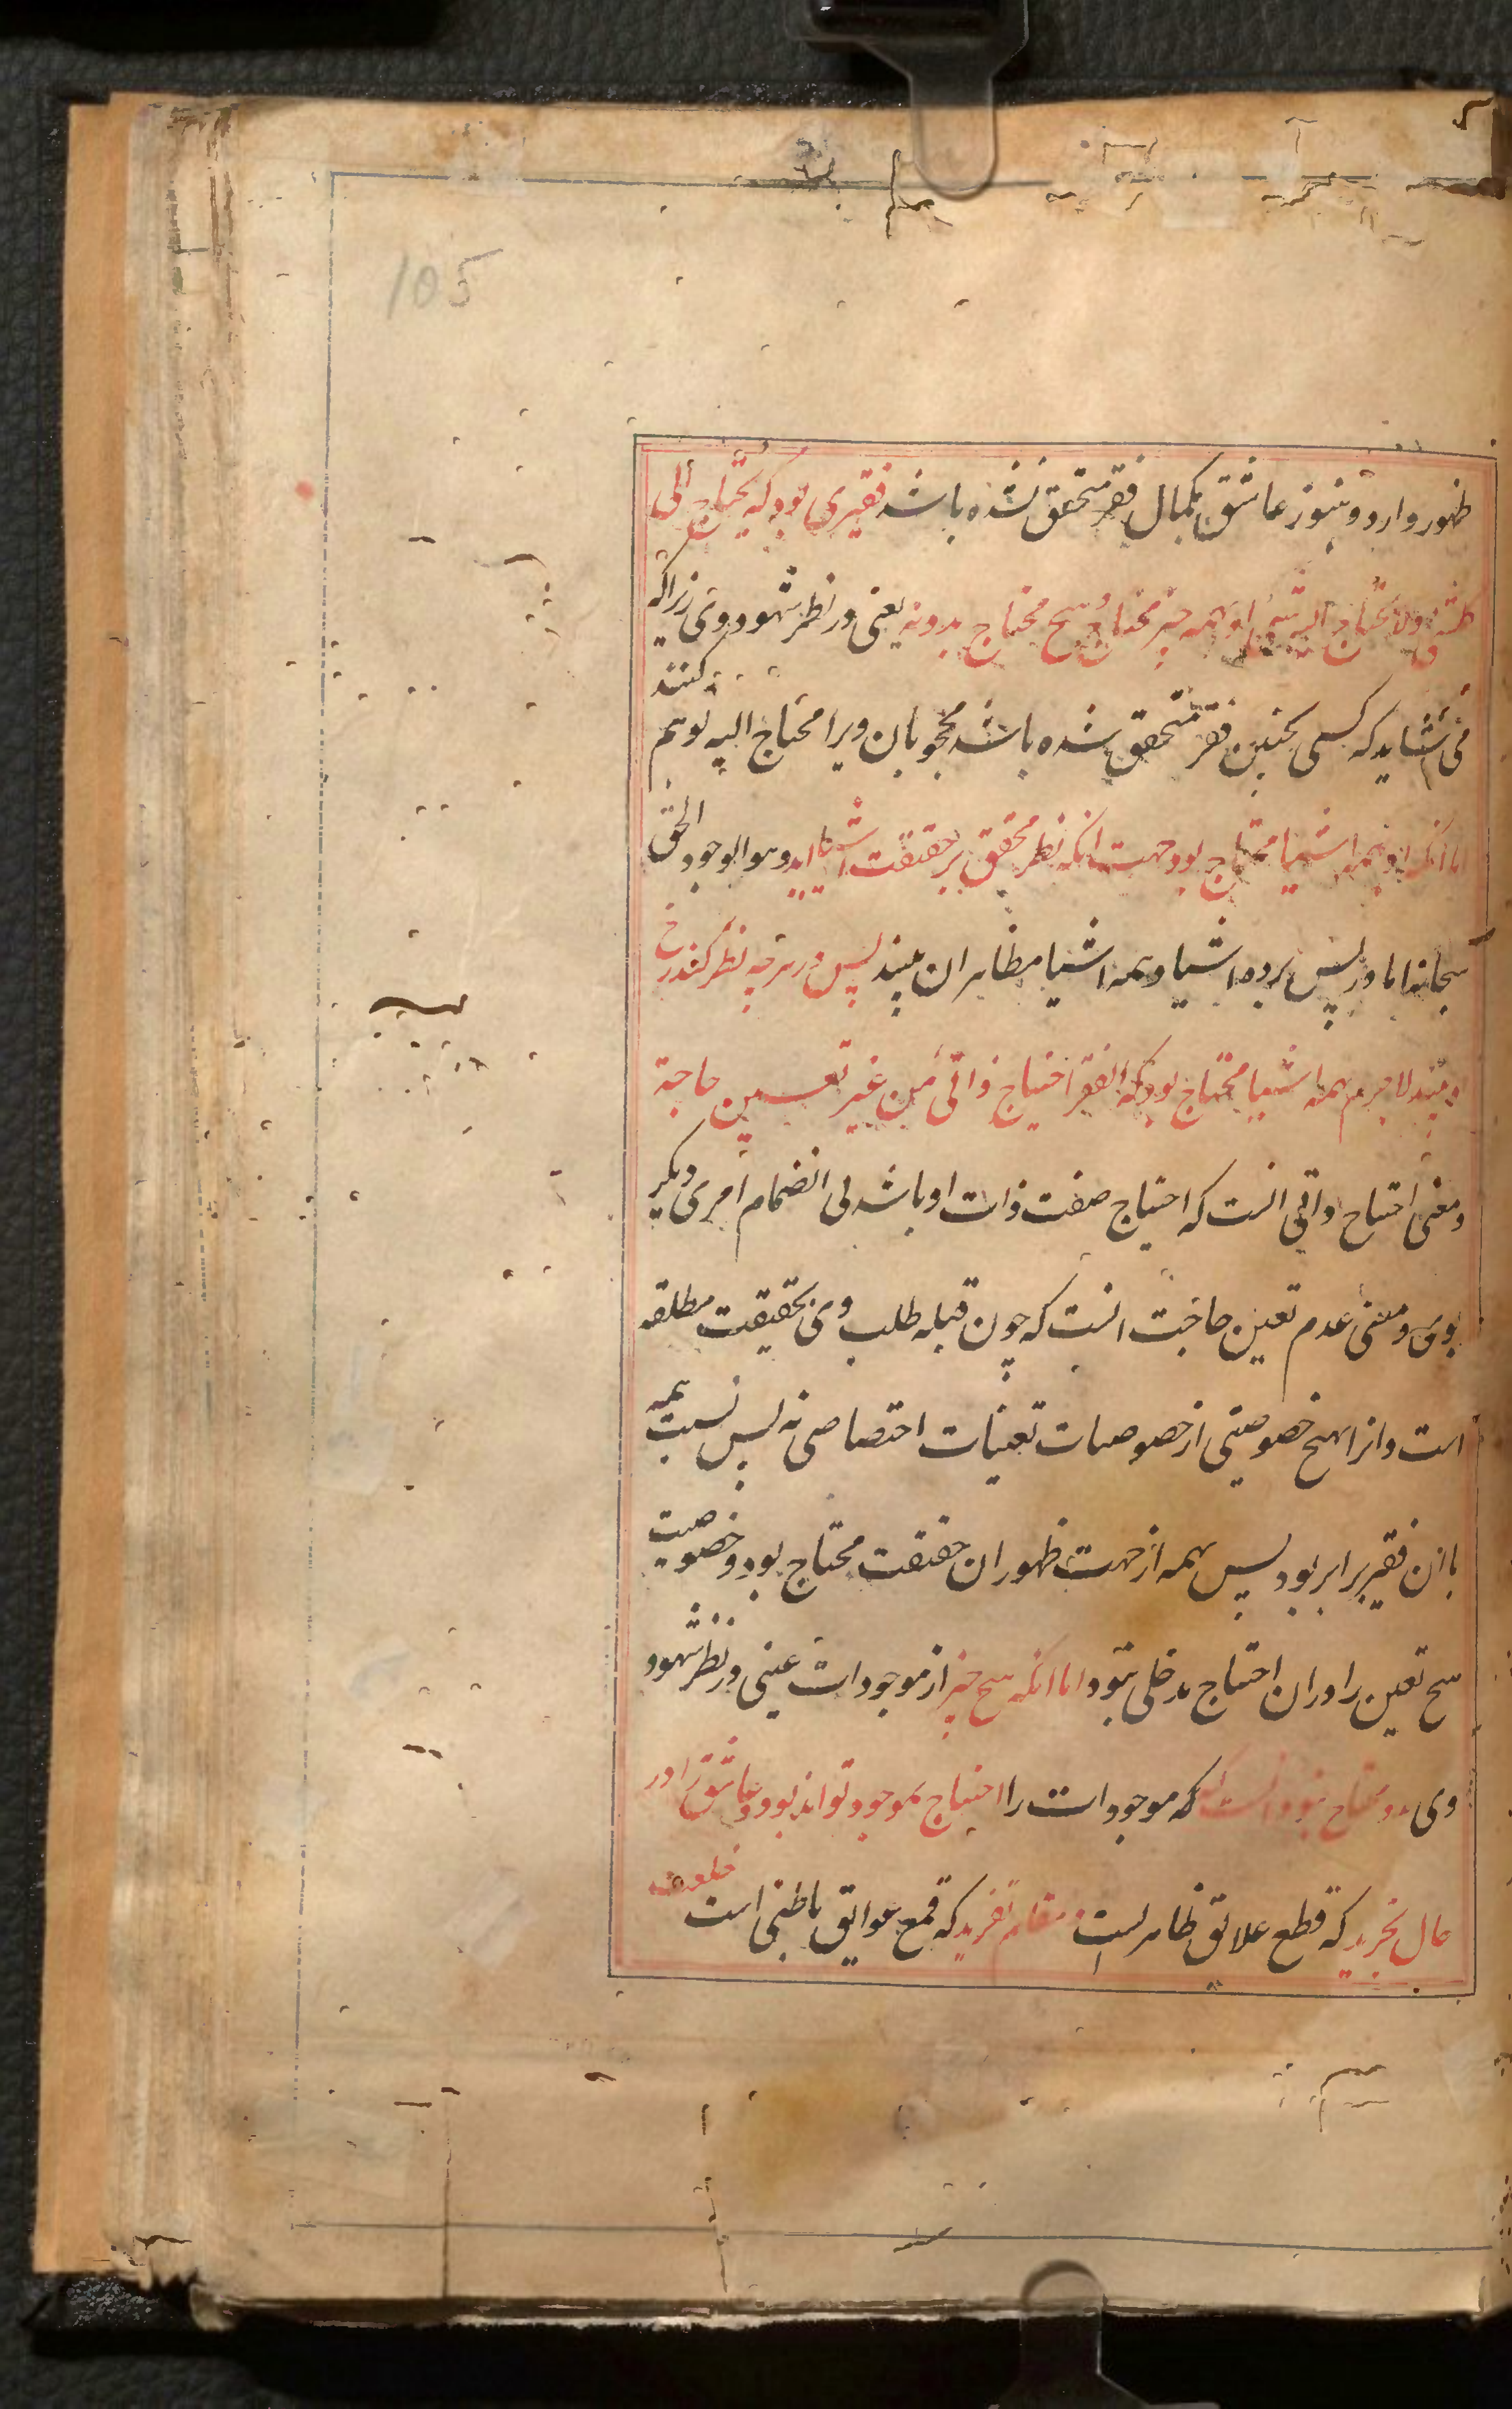 105
ظهور دارد و هنوز عاشق بکمال فقر متحقق نشده باشد فقیری بود که یحتاج الی
کلشیٔ ولا یحتاج الیه شیٔ او بهمه چیز محتاج و هیچ محتاج بدو نه یعنی در نظر شهود وی زیرا که
می شاید که کسی بچنین فقر متحقق شده باشد محجوبان ویرا محتاج الیه توهم کنند
اما آنکه او بهمه اشیا محتاج بود جهت آنکه نظر محقق بر حقیقت اشیا آید و هو الوجود الحق
سبحانه اما در پس پرده اشیا و همه اشیا مظاهر آن بیند پس در هرچه نظر کند رخ
او بیند لاجرم بهمه اشیا محتاج بود که الفقر احتیاج ذاتی من غیر تعیین حاجة
و معنی احتیاج ذاتی انست که احتیاج صفت ذات او باشد بی انضمام امری دیگر
بوی و معنی عدم تعین حاجت انست که چون قبله طلب وی بحقیقت مطلقه
است و انرا هیچ خصوصیتی از خصوصیات تعینات اختصاصی نه پس نسبت همه
با ان فقیر برابر بود پس بهمه از جهت ظهور ان حقیقت محتاج بود و خصوصیت
هیچ تعین را در ان احتیاج مدخلی نبود اما آنکه هیچ چیز از موجودات عینی در نظر شهود
وی بدو محتاج نبود انست که که موجودات را احتیاج بموجود تواند بود و عاشق را در
حال تجرید که قطع علایق ظاهر است و مقام تفرید که قمع عوایق باطنی است خلعت